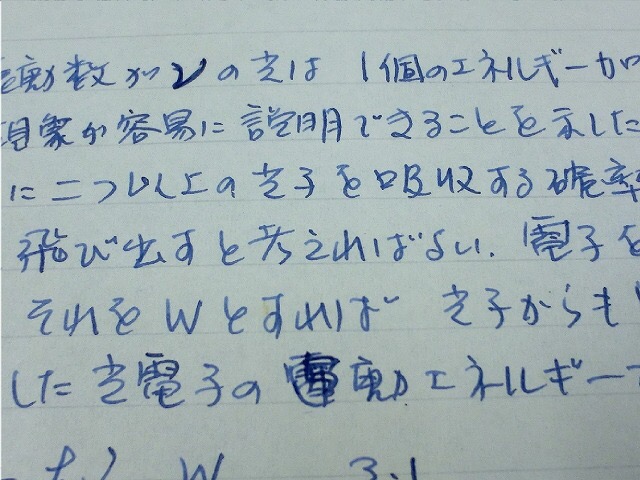 振動数がνの光は 1個のエネルギーが
現象が容易に説明できることを示した
に二つ以上の光子を吸収する確率
飛び出すと考えればよい. 電子を
それをWとすれば 光子からも
した光電子の運動エネルギー
W 3.1